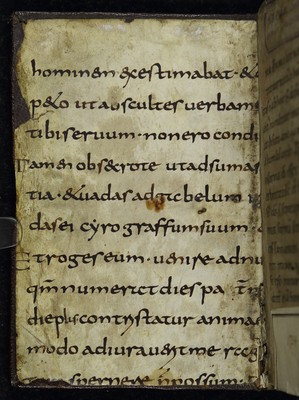 hominem existimabat · &
p&o ut auscultes verba m
tibi seruum · non ero condi
am & obsecro te ut adsumas
tia · & uadas ad gabelum
das ei cyrograffum suum ·
& roges eum · uenire ad nu
qm̅ numerat dies pa
die plus contristatur anima
modo adiurauerit me
spernere n̅ possum ·